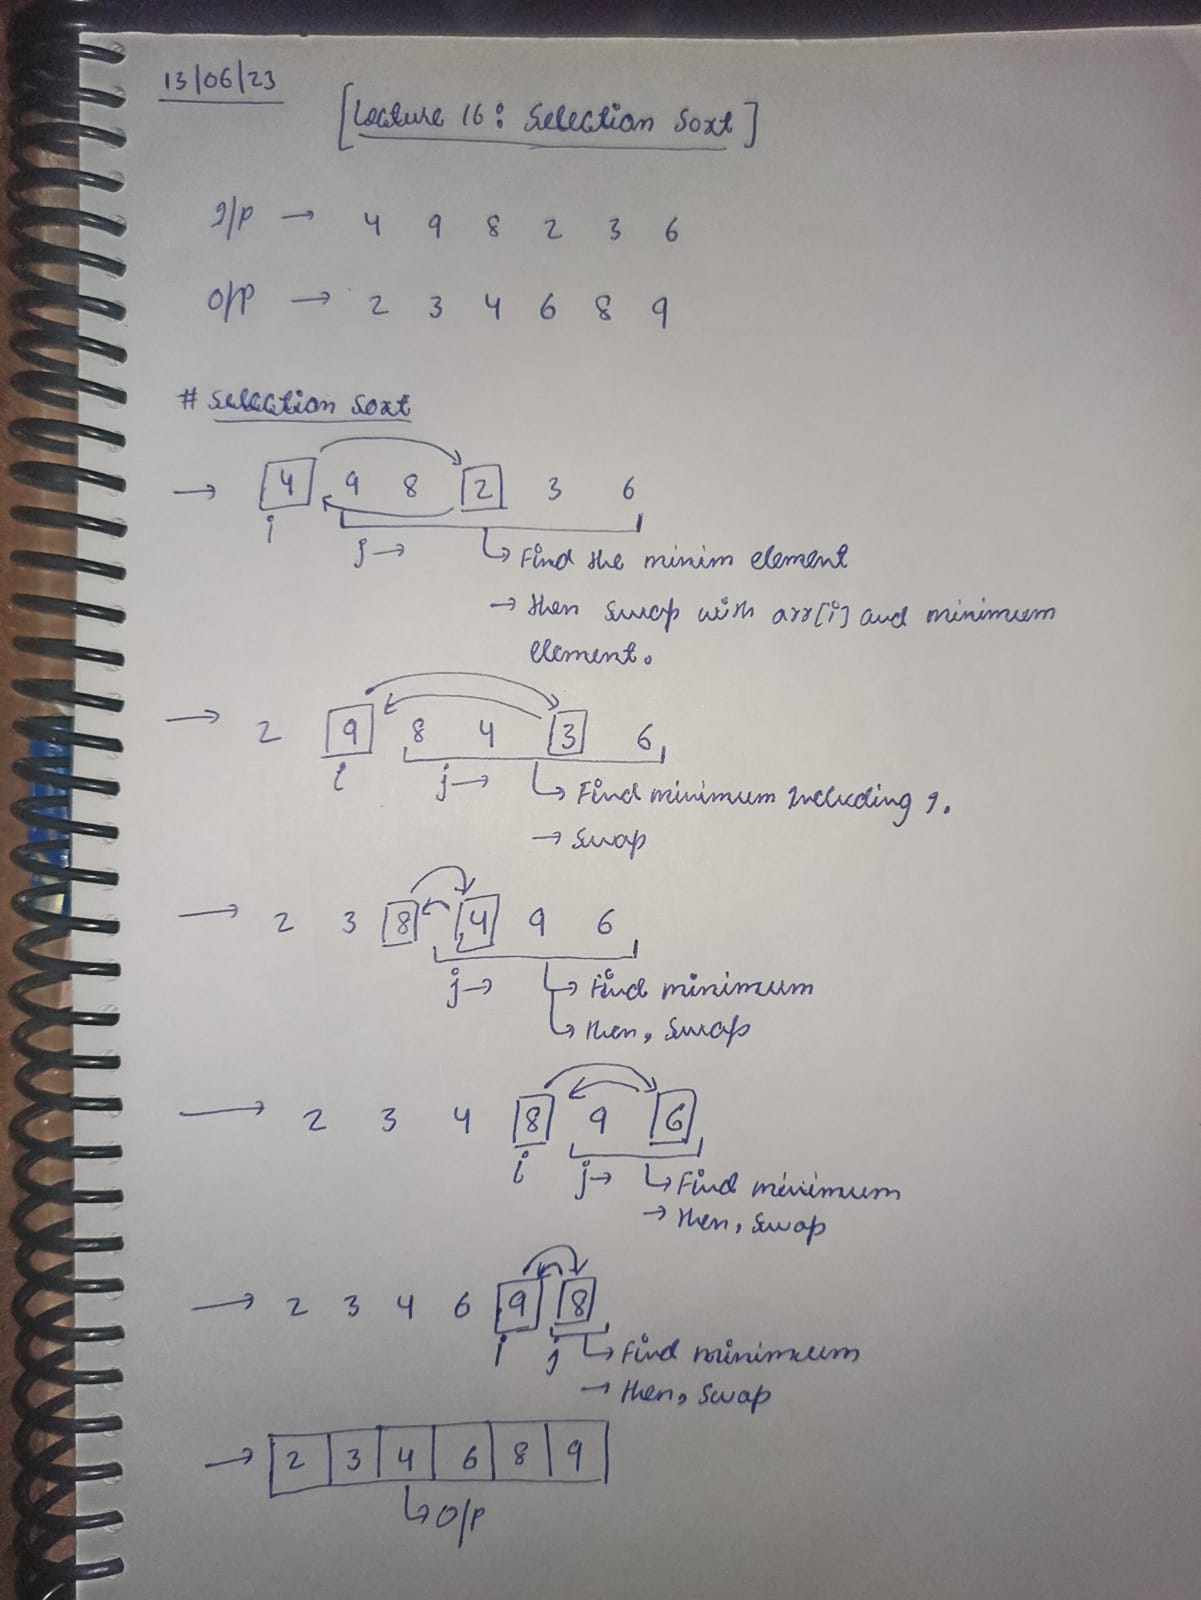 13/06/23
[Lecture 16: Selection Sort]
I/P → 4 9 8 2 3 6
O/P → 2 3 4 6 8 9
# Selection Sort
→ 4 9 8 2 3 6
i
j → ↳ Find the minim element
→ then swap with arr[i] and minimum
element.
→ 2 9 8 4 3 6
i
j → ↳ Find minimum Including 9.
→ Swap
→ 2 3 8 4 9 6
j → ↳ Find minimum
↳ then, Swap
→ 2 3 4 8 9 6
i j → ↳ Find minimum
→ then, Swap
→ 2 3 4 6 9 8
i j ↳ Find minimum
→ then, Swap
→ 2 3 4 6 8 9
↳ O/P